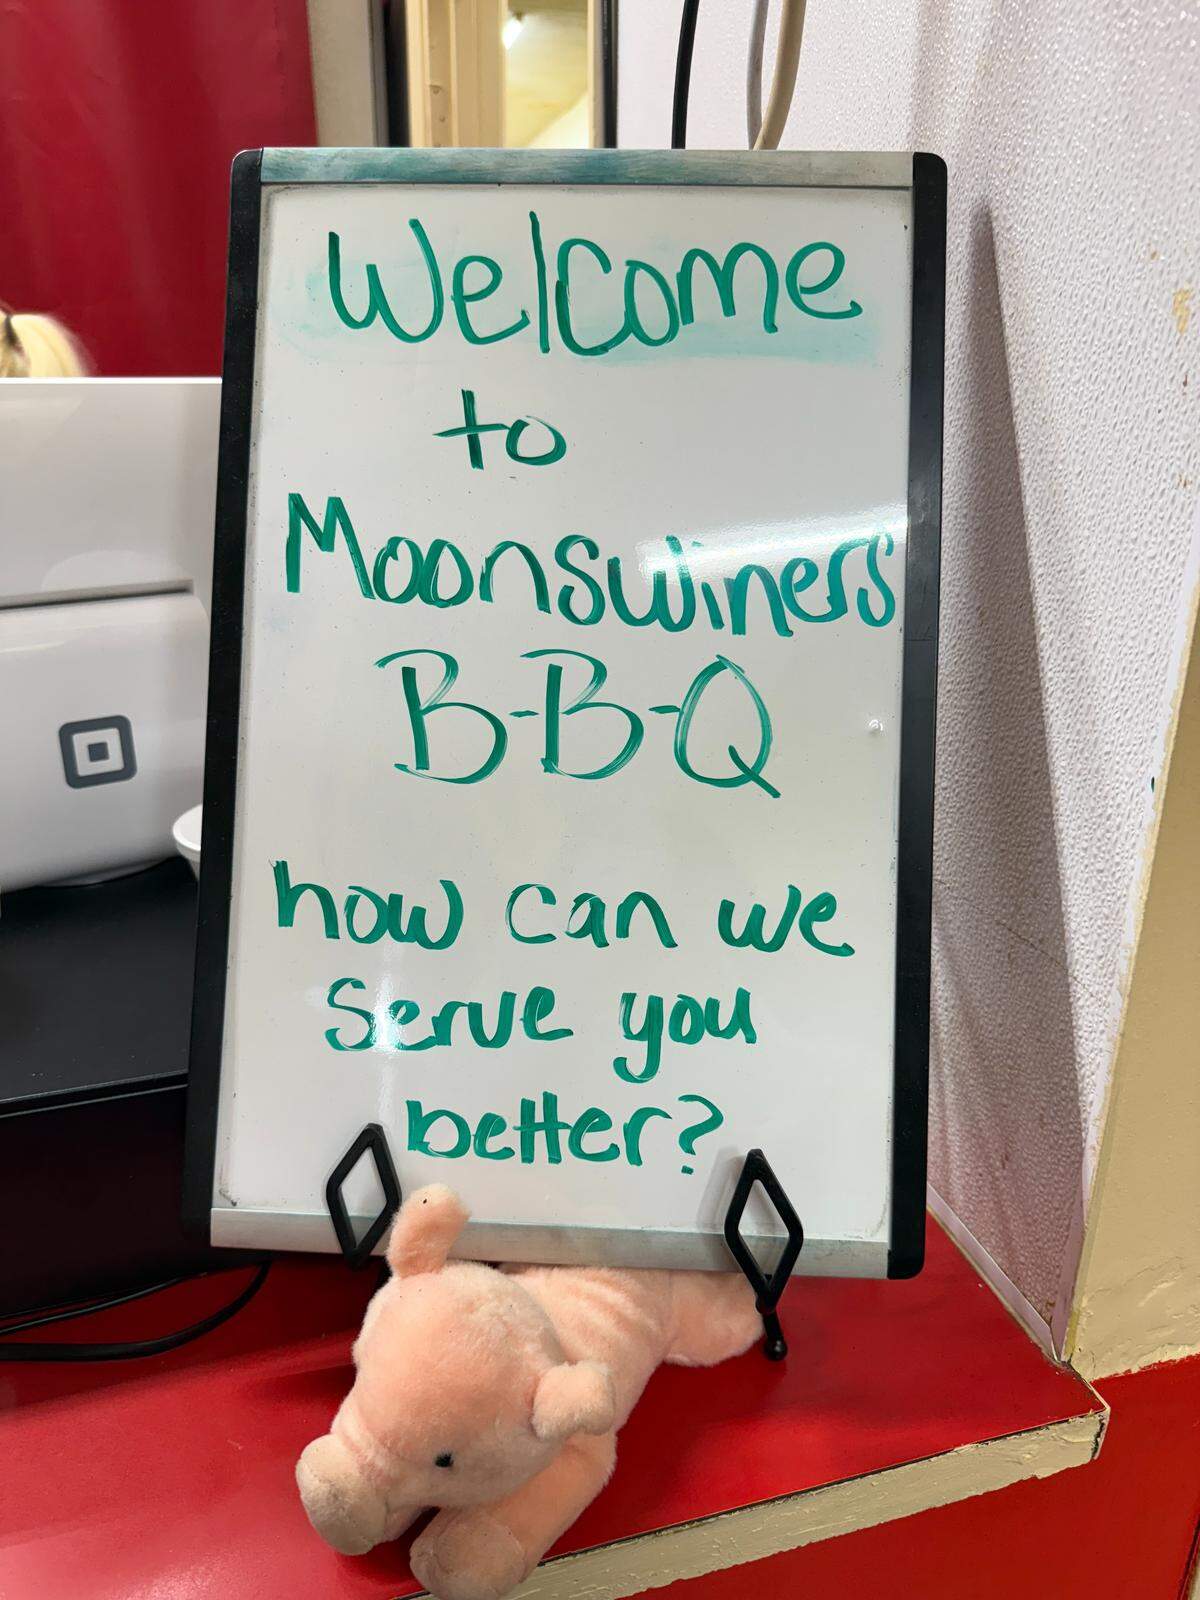 Welcome
to
Moonswiners
B-B-Q
how can we
serve you
better?